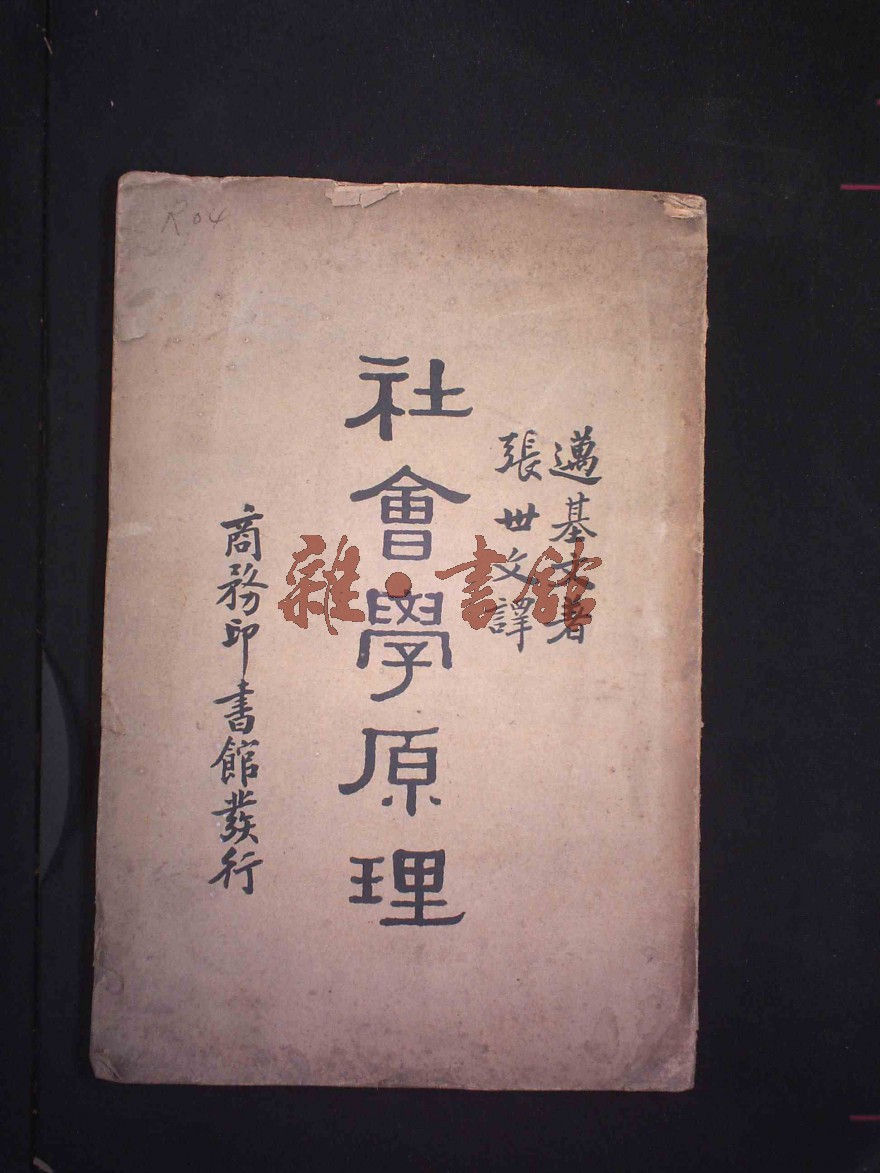 R04
邁基文著
張世文譯
社會學原理
商務印書館發行
雜·書館